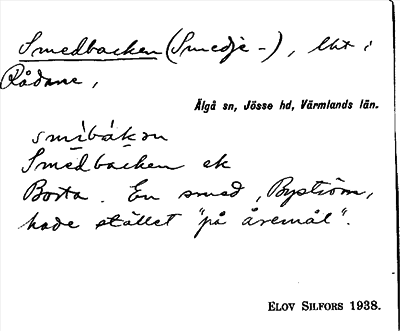 Smedbacken (Smedje-), lht i
Rådane,
Älgå sn, Jösse hd, Värmlands län.
smibákən
Smedbacken ek
Borta. En smed, Byström,
hade stället "på åremål".
ELOV SILFORS 1938.